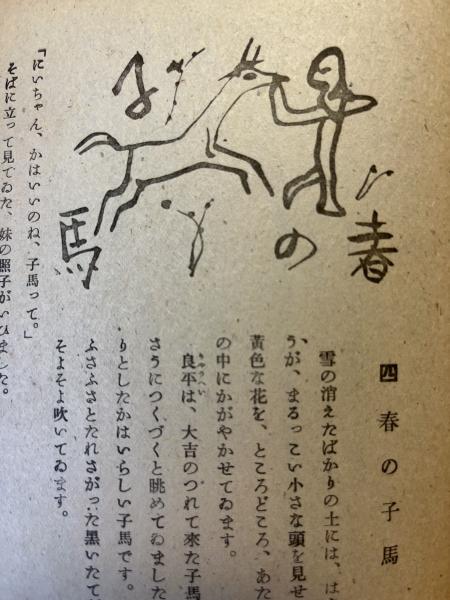 春の子馬
四 春の子馬
雪の消えたばかりの土には、は
うが、まるっこい小さな頭を見せ
黄色な花を、ところどころ、あた
の中にかがやかせてゐます。
良平は、大吉のつれて来た子馬
さうにつくづくと眺めてゐました
りとしたかはいらしい子馬です。
ふさふさとたれさがった黒いたて
そよそよ吹いてゐます。
「にいちゃん、かはいいのね、子馬って。」
そばに立って見てゐた、妹の照子がいひました。